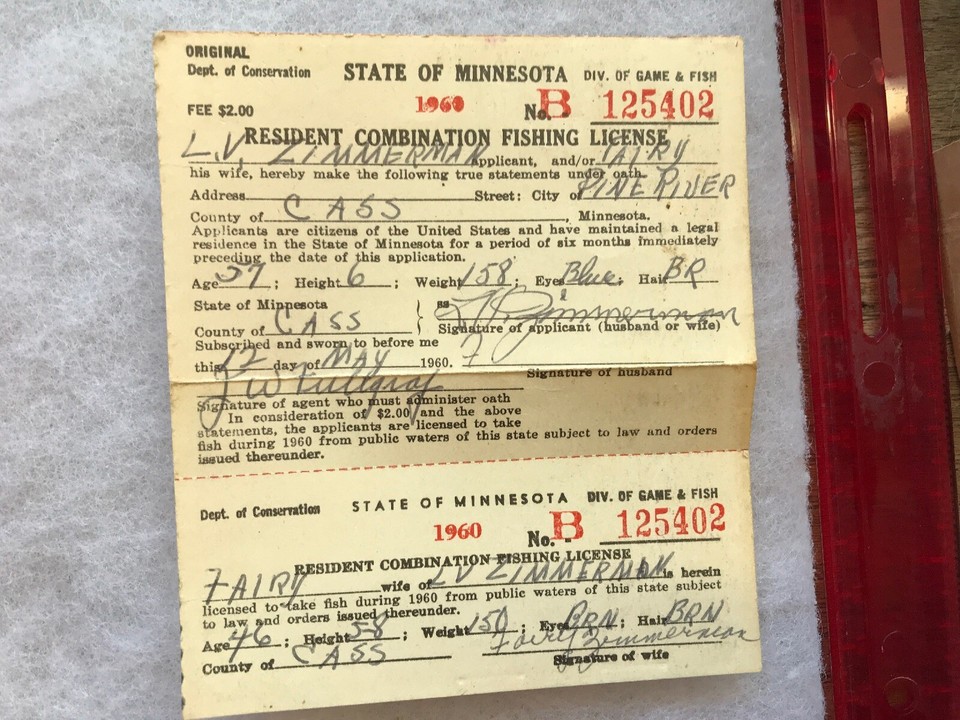 ORIGINAL
Dept. of Conservation STATE OF MINNESOTA DIV. OF GAME & FISH
FEE $2.00 1960 No. B 125402
RESIDENT COMBINATION FISHING LICENSE
L.V. ZIMMERMAN applicant, and/or FAIRY
his wife, hereby make the following true statements under oath.
Address Street: City of PINE RIVER
County of CASS, Minnesota.
Applicants are citizens of the United States and have maintained a legal
residence in the State of Minnesota for a period of six months immediately
preceding the date of this application.
Age 57; Height 6; Weight 158; Eyes Blue; Hair BR
State of Minnesota } ss L V Zimmerman
County of CASS Signature of applicant (husband or wife)
Subscribed and sworn to before me
this 12 day of MAY 1960.
Signature of husband
J W Fullgraf
Signature of agent who must administer oath
In consideration of $2.00 and the above
statements, the applicants are licensed to take
fish during 1960 from public waters of this state subject to law and orders
issued thereunder.
Dept. of Conservation STATE OF MINNESOTA DIV. OF GAME & FISH
1960 No. B 125402
RESIDENT COMBINATION FISHING LICENSE
FAIRY wife of LV ZIMMERMAN is herein
licensed to take fish during 1960 from public waters of this state subject
to law and orders issued thereunder.
Age 46; Height 58; Weight 150; Eyes BRN; Hair BRN
County of CASS Fairy Zimmerman
Signature of wife